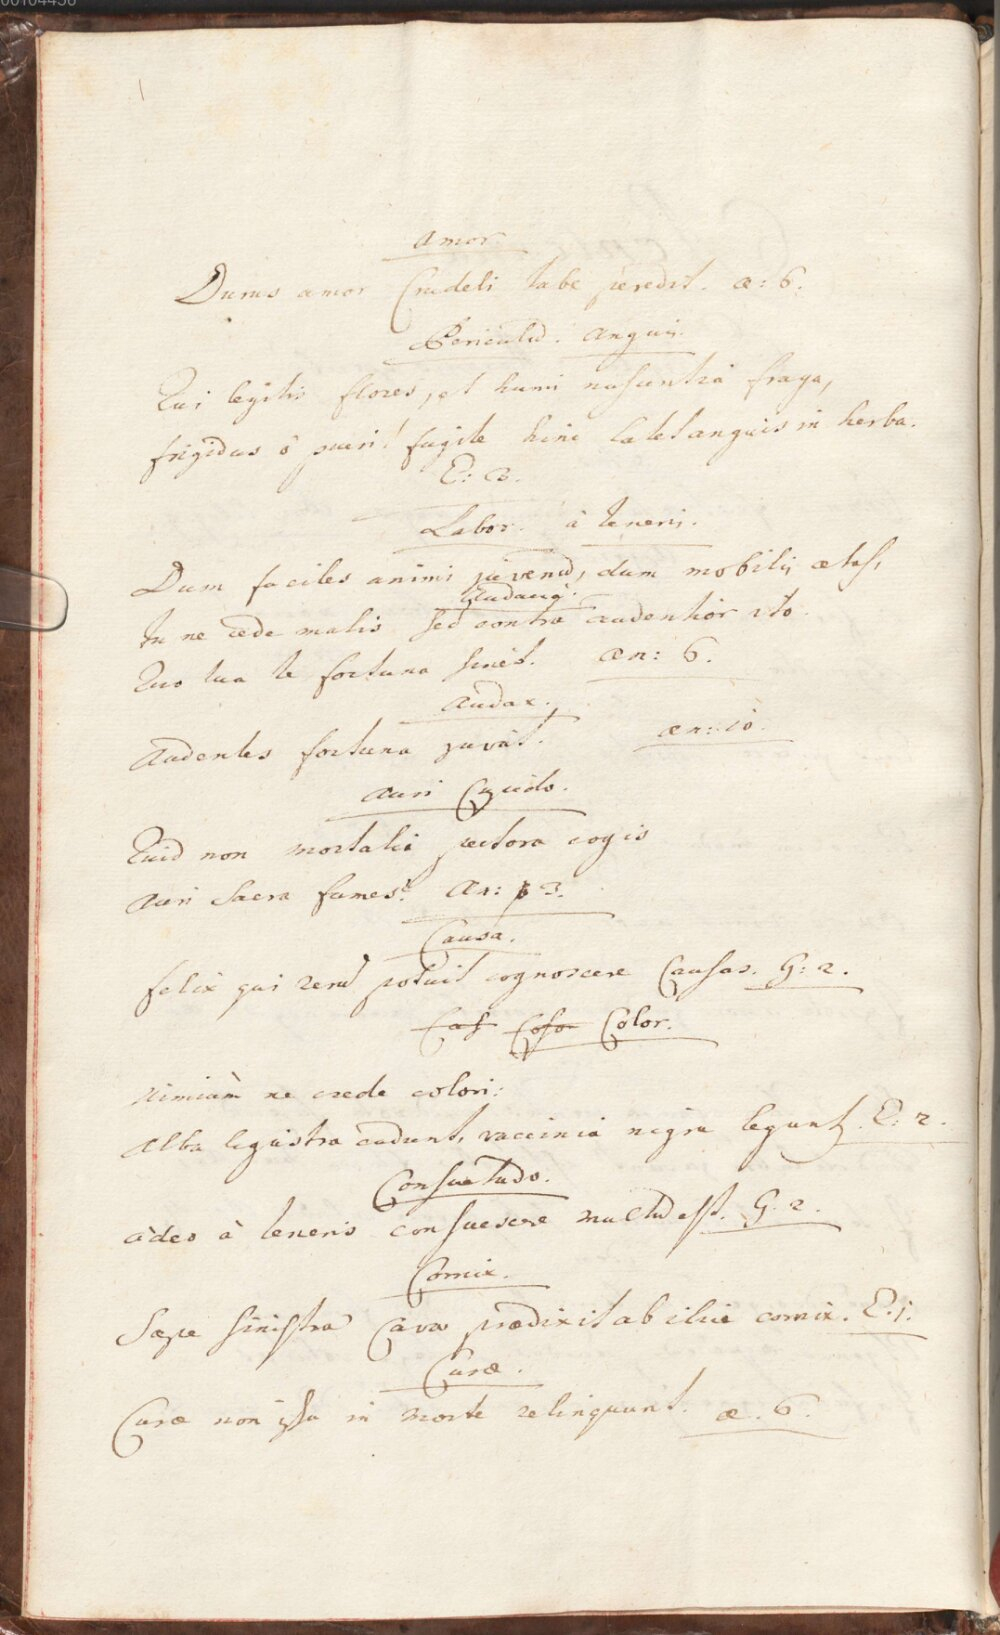 00104456
Amor
Durus amor Crudeli tabe peredit. æ: 6.
Periculũ. Anguis.
Qui legitis flores, et humi nascentia fraga,
frigidus ô pueri! fugite hinc latet anguis in herba.
E: 3.
Labor. à teneris.
Dum faciles animi juvenũ, dum mobilis ætas,
Audacia.
Tu ne cede malis sed contra audentior ito
Quo tua te fortuna sinet. æn: 6.
Audax.
Audentes fortuna juvat. æn: 10.
Auri Cupido.
Quid non mortalia pectora cogis
Auri Sacra fames? Æn: 3.
Causa.
felix qui rerũ potuit cognoscere Causas. G: 2.
Cas Coso Color.
Nimiùm ne crede colori:
Alba ligustra cadunt, vaccinia nigra leguntur. E: 2.
Consuetudo.
àdeo à teneris consuescere multũ est. G. 2.
Cornix.
Sæpe sinistra Cava prædixit ab ilice cornix. E. 1.
Curæ.
Curæ non ipsa in morte relinquunt. æ. 6.